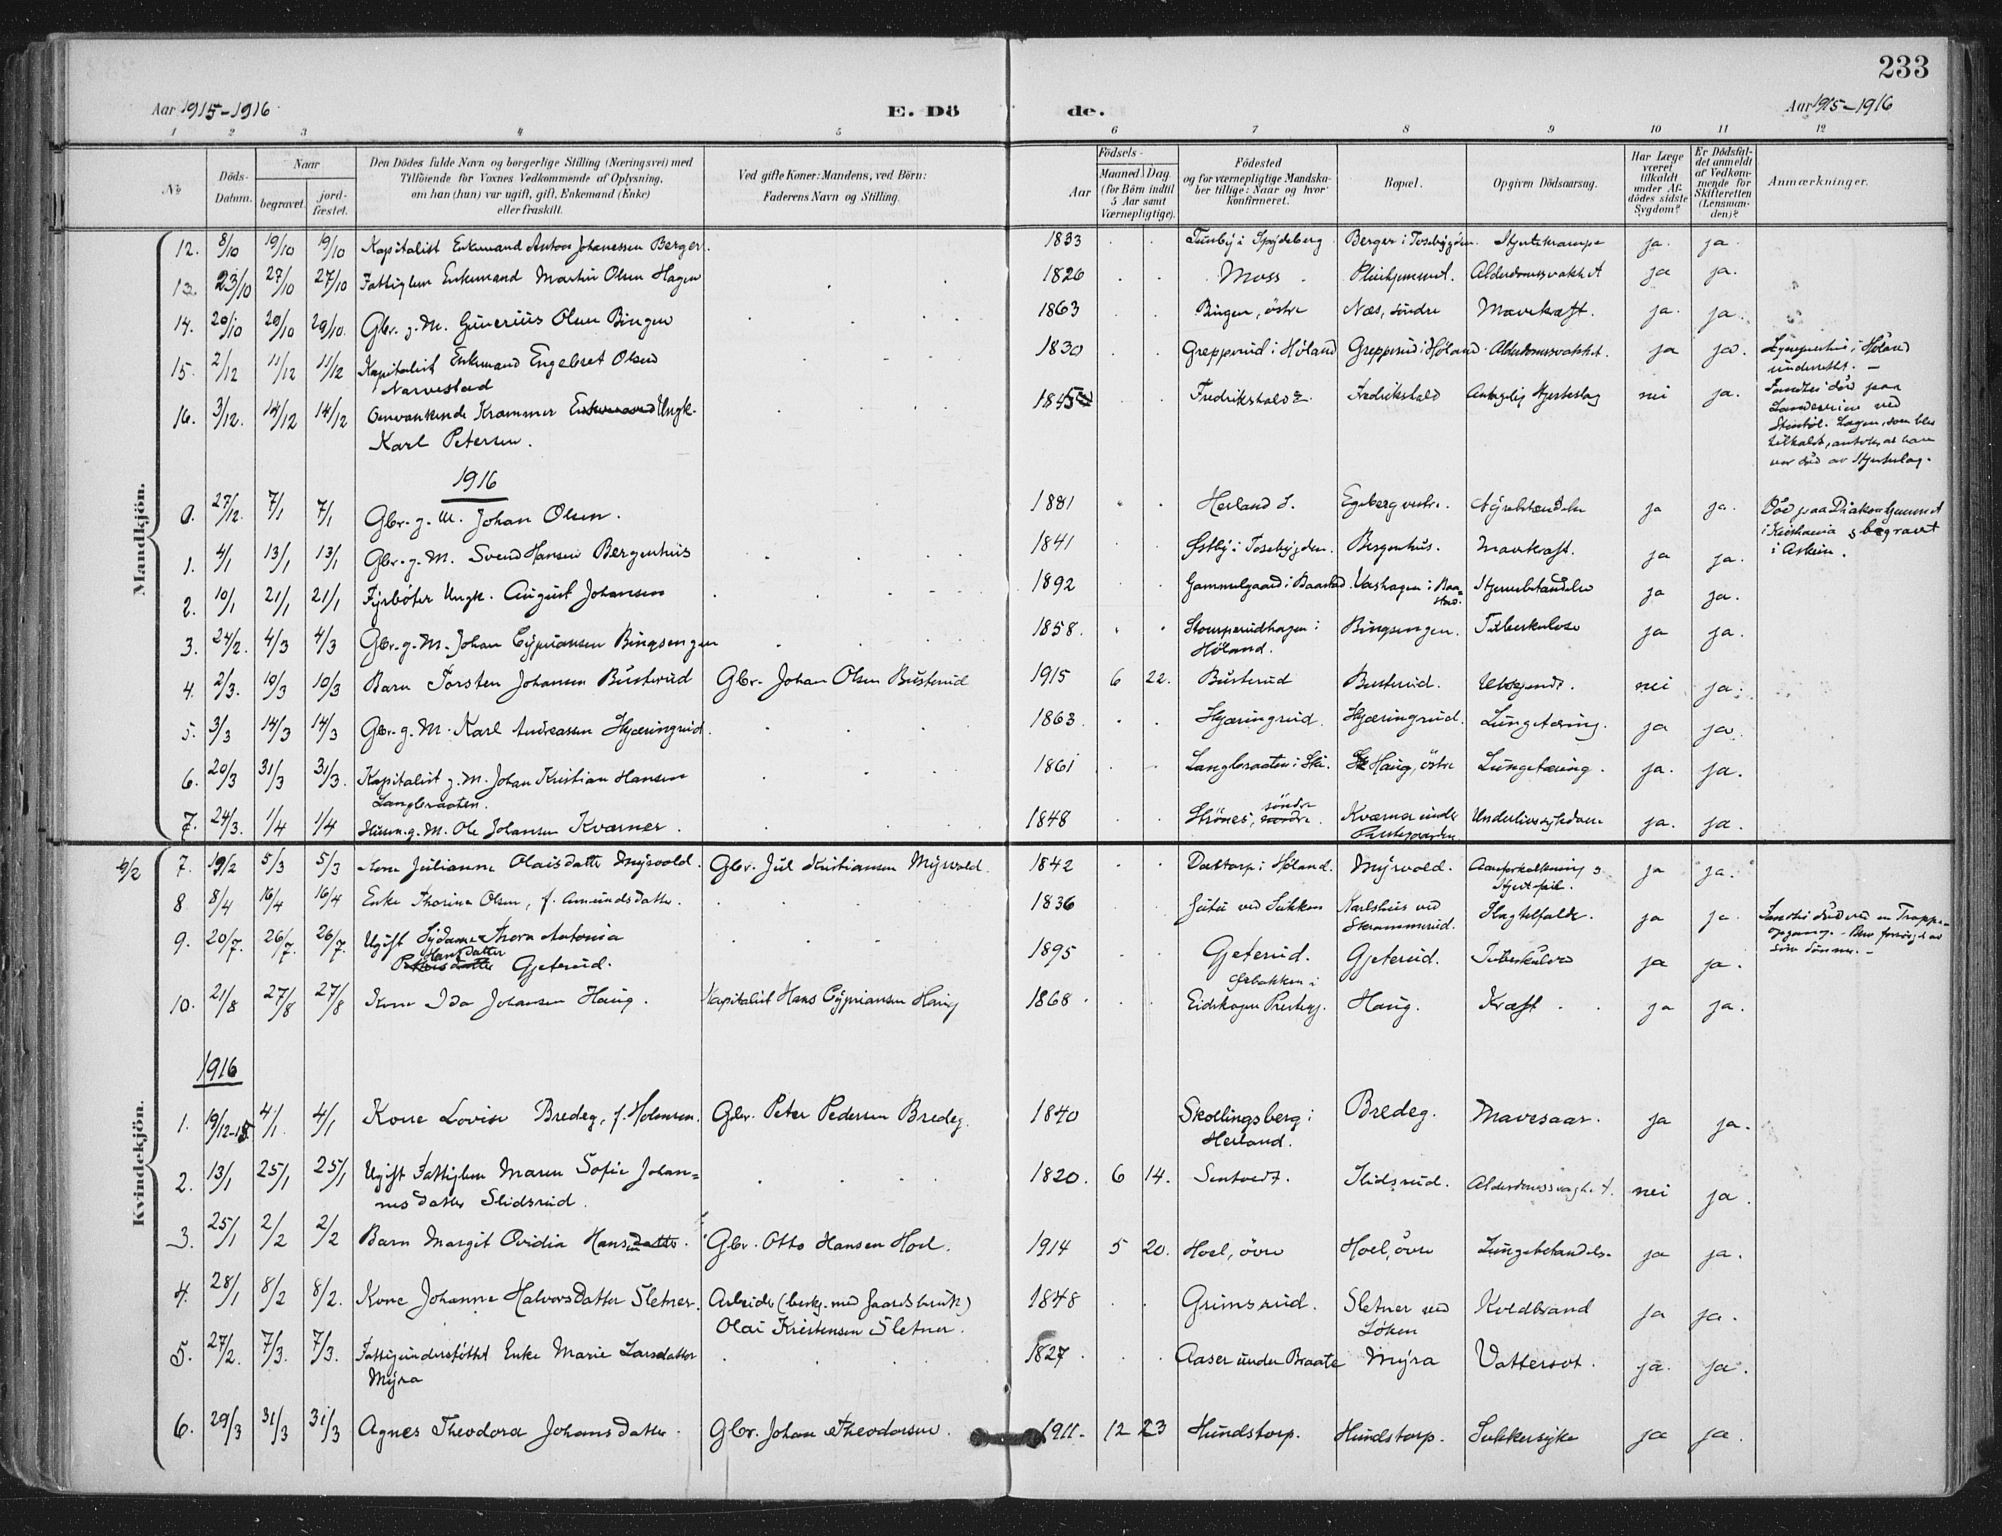 233
Aar 1915-1916
E. Dö
de.
Aar 1915-1916
1 2 3 4 5 6 7 8 9 10 11 12
No
Döds-
Datum.
Naar
begravet.
jord-
fæstet.
Den Dödes fulde Navn og borgerlige Stilling (Næringsvei) med
Tilföiende for Voxnes Vedkommende af Oplysning,
om han (hun) var ugift, gift, Enkemand (Enke)
eller fraskilt.
Ved gifte Koner: Mandens, ved Börn:
Faderens Navn og Stilling.
Födsels-
Aar
Maaned
Dag.
(for Börn indtil
5 Aar samt
Værnepligtige).
Födested
og for værnepligtige Mandska-
ber tillige: Naar og hvor
konfirmeret.
Bopæl.
Opgiven Dödsaarsag.
Har Læge
været
tilkaldt
under Af-
dödes sidste
Sygdom?
Er Dödsfal-
det anmeldt
af Vedkom-
mende for
Skifteretten
(Lensman-
den)?
Anmærkninger.
Mandkjön.
12. 8/10 19/10 19/10 Kapitalist Enkemand Anton Johanessen Berger. 1833 Spydeberg Berger i ja. ja.
13. 23/10 27/10 27/10 Fattiglem Enkemand Martin Olsen Hagen 1826 Moss Pleiehjemmet. Alderdomssvakhet ja ja.
14. 20/10 29/10 29/10. Gbr. g. M. Guverius Olsen Bingen 1863 Bingen, östre Næs, söndre Mavekræft. ja. ja.
15. 2/12 11/12 11/12 Kapitalist Enkemand Engebret Olsen
Narvestad 1830 Grepperud i Höland Grepperud i Höland Alderdomssvakhet. ja ja. i Höland
underrettet. -
16. 3/12. 14/12 14/12 Omvankende Kræmmer Enkemand Ungk.
Karl Petersen. 1845 Fredrikshald Fredrikshald Antagelig Hjerteslag nei ja. Fandtes död paa
ved
Lægen, som blev
tilkaldt, antok, at han
var död av Hjerteslag.
1916
0. 27/12. 7/1 7/1 Gbr. g. M. Johan Olsen. 1881 Herland S. Egeberg vestre. Nyrebetændelse ja ja. Död paa Diakonhjemmet
i Kristiania, begravet
i Askim.
1. 4/1 13/1 13/1 Gbr. g. M. Svend Hansen Bergenhus 1841 Østby i Tosebygden. Bergenhus. Mavekræft. ja ja.
2. 10/1 21/1 21/1 Fyrböter Ungk. August Johansen 1892 Gammelgaard i Baastad. i Baa-
stad. ja ja.
3. 24/2. 4/3 4/3 Gbr. g. M. Johan Cypriansen Bingsengen 1858. Stomperudhagen i
Höland. Bingsengen. Tuberkulose ja ja.
4. 2/3. 10/3 10/3 Barn Torsten Johansen Busterud Gbr. Johan Olsen Busterud 1915 6 22. Busterud Busterud. Ukjendt. nei ja.
5. 3/3 14/3 14/3 Gbr. g. M. Karl Andreassen Hjæringrud. 1863. Hjæringrud. Hjæringrud. Lungetæring. ja ja.
6. 20/3 31/3 31/3. Kapitalist g. M. Johan Kristian Hansen
Langbraaten. 1861 Langbraaten i Ski. Haug, östre Lungetæring. ja. ja.
7. 24/3. 1/4 1/4 Husm. g. M. Ole Johansen Kværner. 1848 Strönes, söndre nordre. Kværner under
Prestegaarden Underlivssygdom ja. ja.
Kvindekjön.
6/2 7. 19/2 5/3 5/3 Kone Julianne Olaisdatter Myrvold. Gbr. Jul Kristiansen Myrvold. 1842 Daltorp i Höland. Myrvold. Aareforkalkning
ja ja.
8 8/4 16/4 16/4 Enke Thorine Olsen, f. Amundsdatter. 1836 ved Karlshus ved
Skrammerud. Slagtilfælde. ja ja. död ved en Trappe-
opgang.
9. 20/7. 26/7. 26/7. Ugift Sydame Thora Antonia
Hansdatter
Gjeterud. 1895 Gjeterud. Gjeterud. Tuberkulose ja ja.
10. 21/8 27/8 27/8 Kone Ida Johansen Haug. Kapitalist Hans Cypriansen Haug 1868 i
Eidskogen Prestegj. Haug. Kræft ja ja.
1916
1. 19/12-15 4/1 4/1 Kone Lovise Bredeg, f. Holmsen. Gbr. Peter Pedersen Bredeg. 1840 Skollingsberg i
Herland. Bredeg. Mavesaar. ja ja.
2. 13/1 25/1 25/1 Ugift Fattiglem Maren Sofie Johan-
nesdatter Slidsrud. 1820. 6 14. Sentvedt. Slidsrud. Alderdomssvaghet. nei ja.
3. 25/1 2/2 2/2 Barn Margit Ovidia Hansdatter. Gbr. Otto Hansen Hoel. 1914 5 20. Hoel, övre Hoel, övre Lungebetændelse ja ja.
4. 28/1 8/2 8/2. Kone Johanne Halvorsdatter Sletner. Arbeider (besk. med Gaardsbruk)
Olai Kristensen Sletner. 1848 Grimsrud. Sletner ved
Löken Koldbrand ja ja.
5. 27/2. 7/3. 7/3. Fattigunderstöttet Enke Marie Larsdatter
Myra 1827 Aaser under Braate Myra Vattersot. ja. ja.
6. 29/3 31/3 31/3 Agnes Theodora Johansdatter. Gbr. Johan Theodorsen. 1911. 12 23 Hundstorp. Hundstorp. Sukkersyke ja ja.